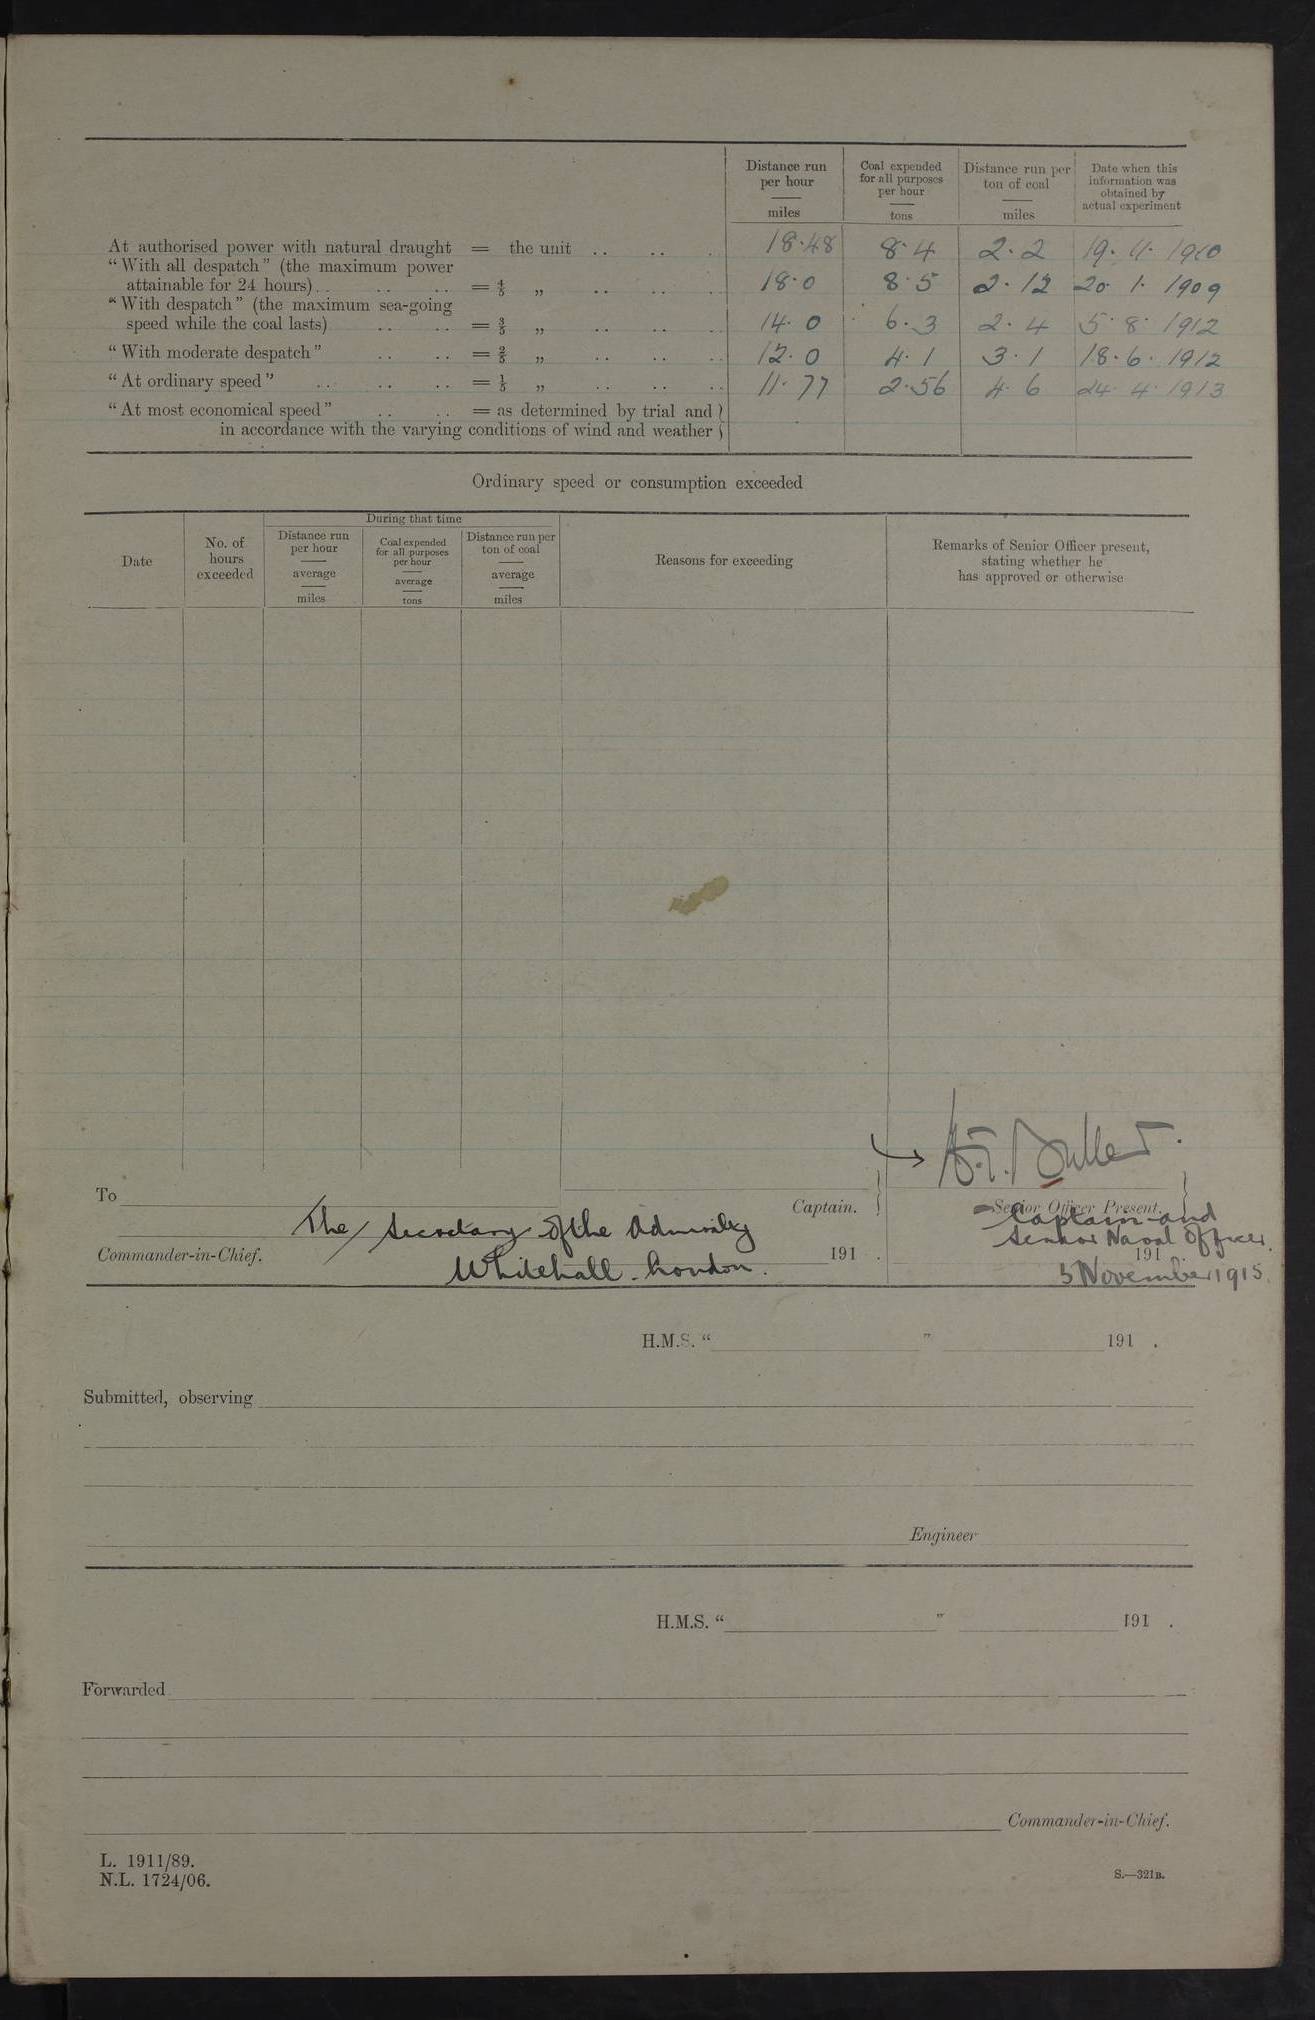 Distance run per hour — miles
Coal expended for all purposes per hour — tons
Distance run per ton of coal — miles
Date when this information was obtained by actual experiment
At authorised power with natural draught = the unit .. .. . 18·48 8·4 2·2 19· 11· 1910
“With all despatch” (the maximum power
attainable for 24 hours) .. .. .. = 4/5 „ .. .. .. 18·0 8·5 2·12 20· 1· 1909
“With despatch” (the maximum sea-going
speed while the coal lasts) .. .. = 3/5 „ .. .. .. 14·0 6·3 2·4 5· 8· 1912
“With moderate despatch” .. .. = 2/5 „ .. .. .. 12·0 4·1 3·1 18·6· 1912
“At ordinary speed” .. .. .. = 1/5 „ .. .. .. 11·77 2·56 4·6 24· 4· 1913
“At most economical speed” .. .. = as determined by trial and
in accordance with the varying conditions of wind and weather
Ordinary speed or consumption exceeded
Date
No. of hours exceeded
During that time
Distance run per hour — average — miles
Coal expended for all purposes per hour — average — tons
Distance run per ton of coal — average — miles
Reasons for exceeding
Remarks of Senior Officer present, stating whether he has approved or otherwise
To
Captain.
Senior Officer Present.
The Secretary of the Admiralty
Captain and
Senior Naval Officer.
Commander-in-Chief.
191 .
191
Whitehall. London.
5 November 1915.
H.M.S. “ ” 191 .
Submitted, observing
Engineer
H.M.S. “ ” 191 .
Forwarded
Commander-in-Chief.
L. 1911/89.
N.L. 1724/06.
S.—321B.